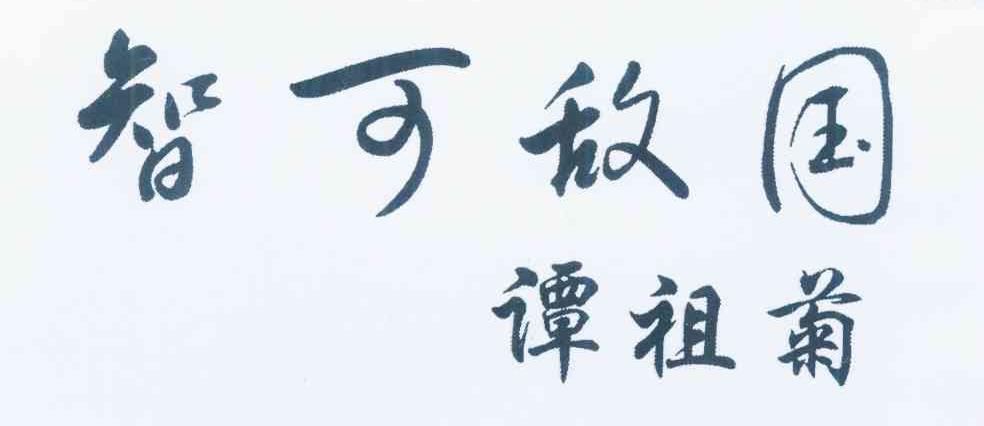 智可敌国
谭祖菊